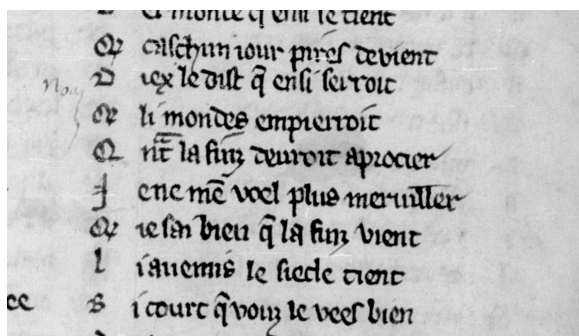 Li monde q̄ ensi se tient
Qr caschun iour pires devient
D iex le dist q̄ ensi seiroit
Qr li mondes empierroit
Q nt̄ la finz deuroit aprocier
J e ne mē voel plus meruiller
Qr ie sai bien q̄ la finz vient
l i auemis le siecle tient
S i court q̄ voiz le vees bien